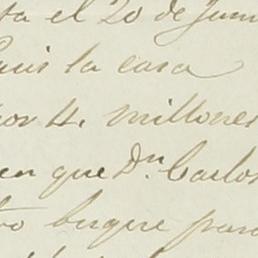 ta el 20 de Juni
Paris la casa
por 4. millones
en que Dn. Carlos
tro buque para